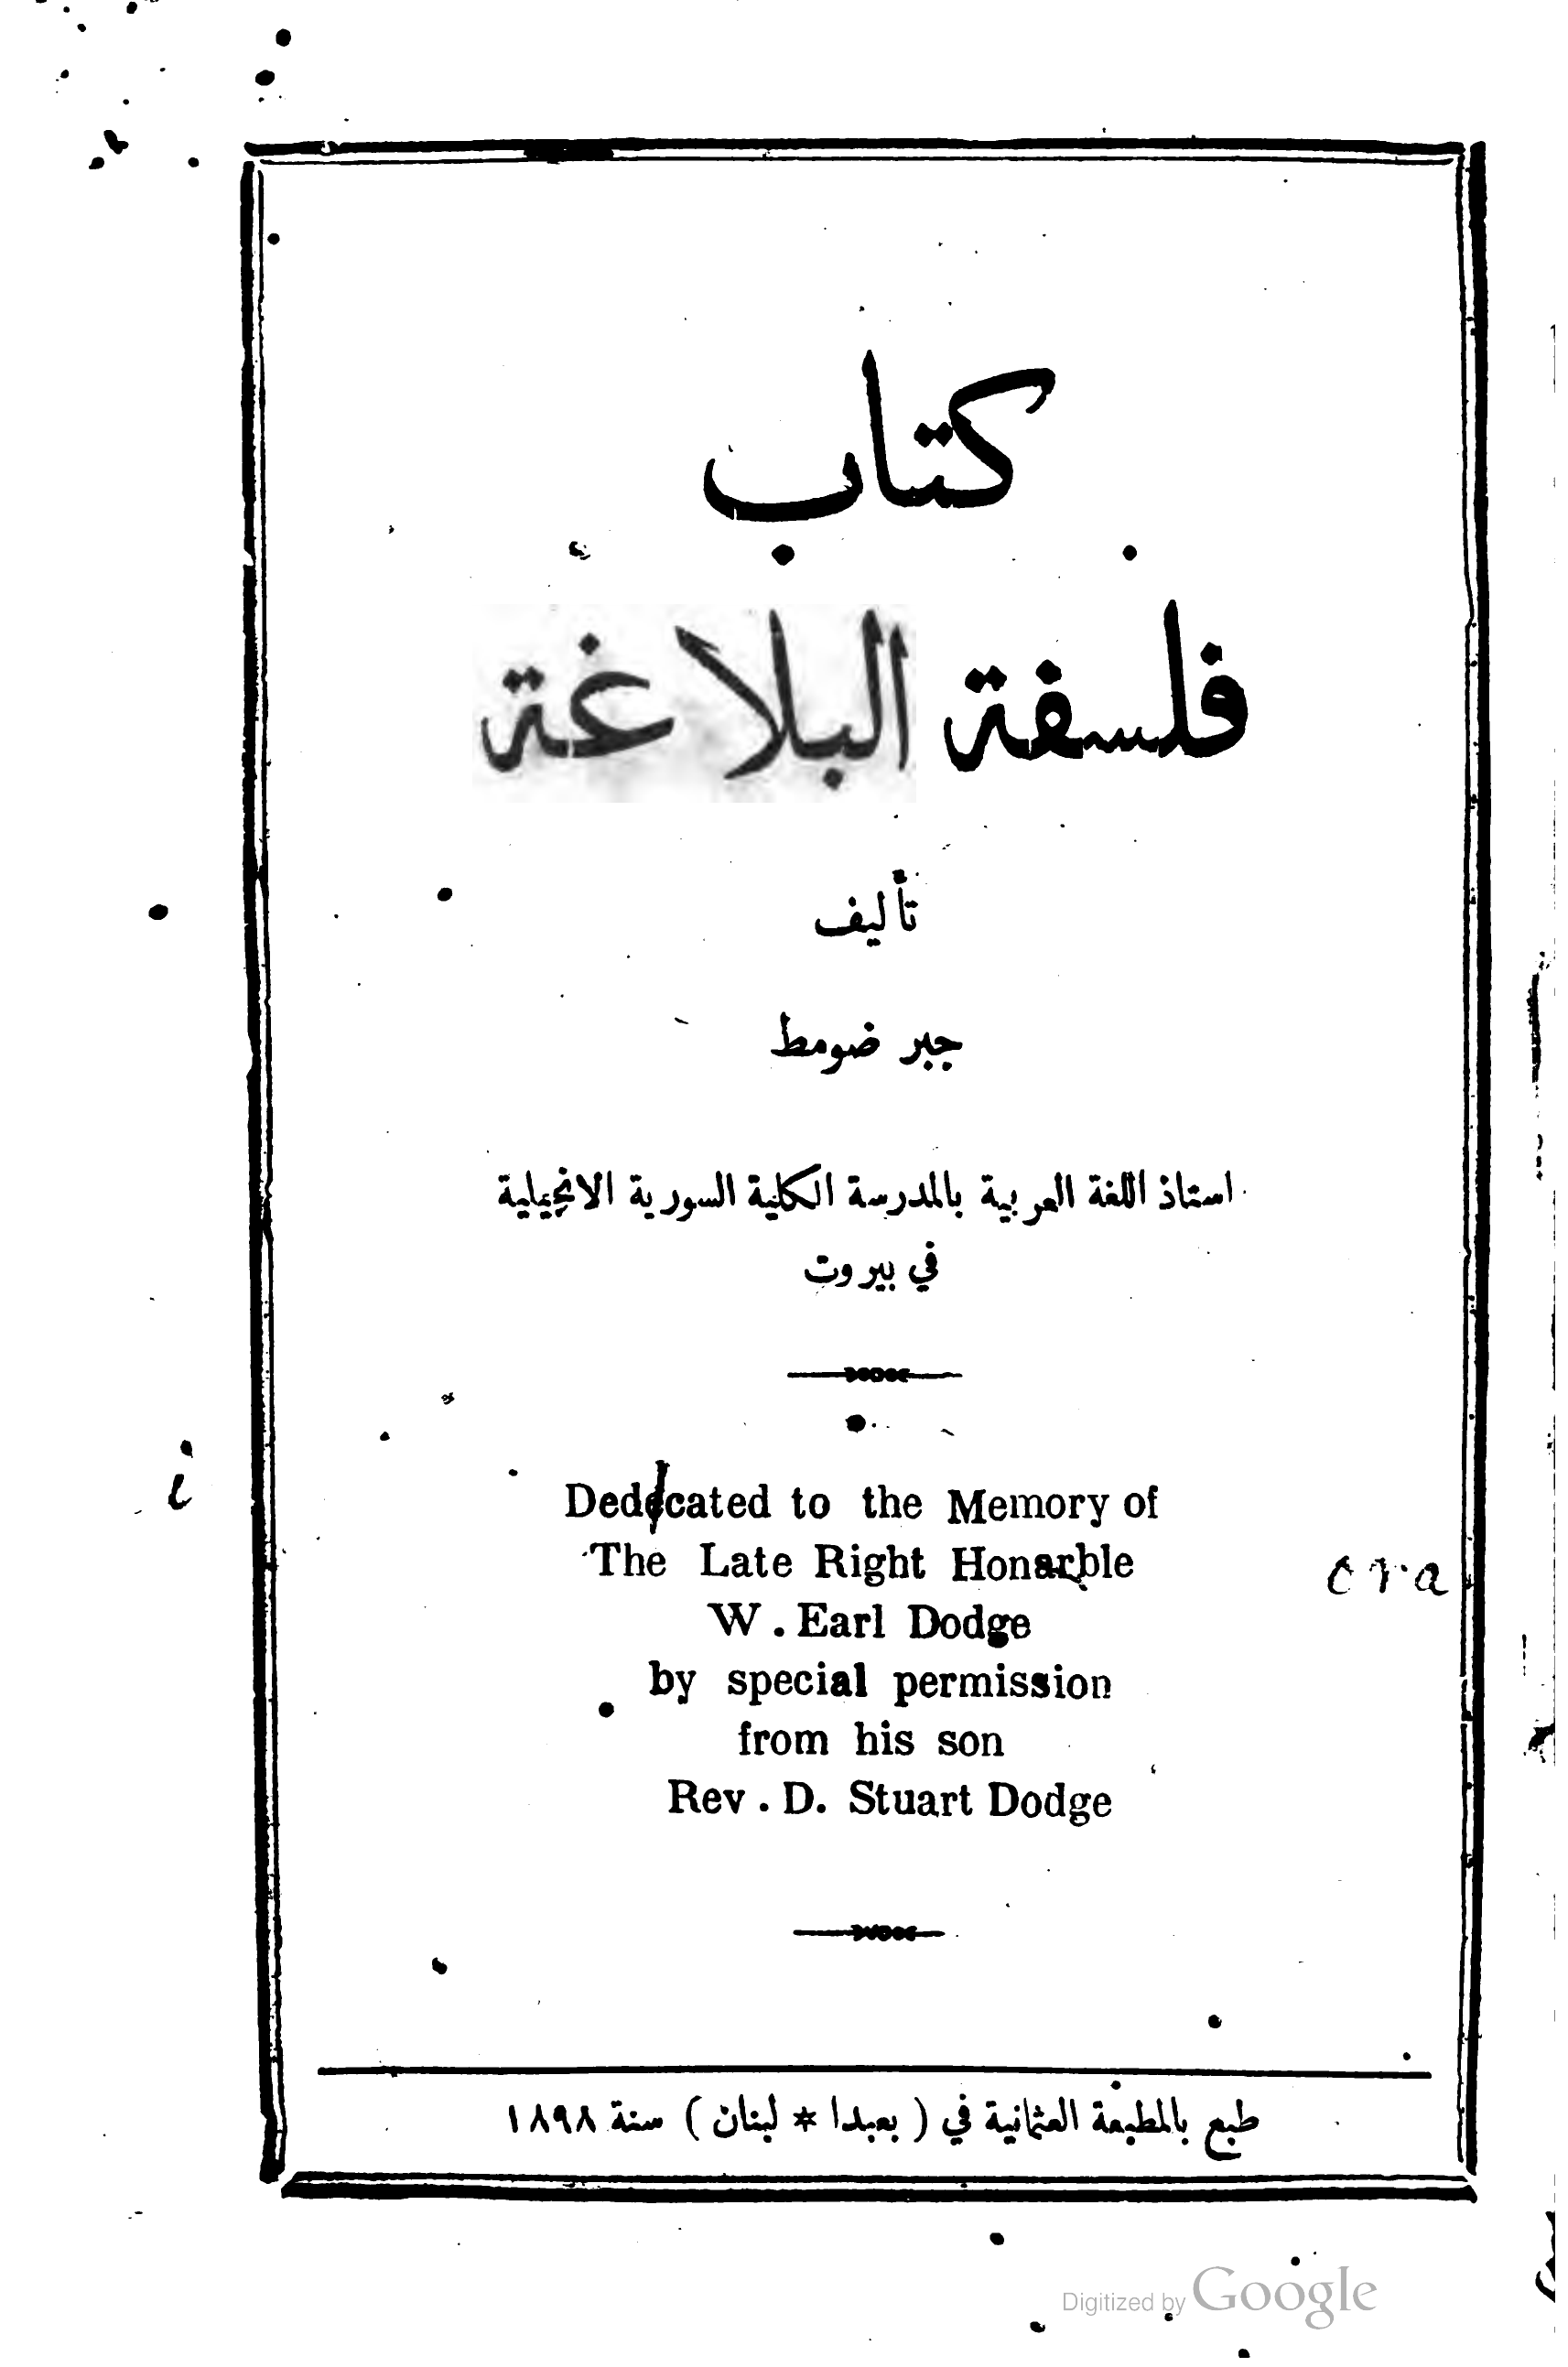 كتاب
فلسفة البلاغة
تأليف
جبر ضومط
استاذ اللغة العربية بالمدرسة الكلية السورية الانجيلية
في بيروت
i
Dedecated to the Memory of
The Late Right Honarble
ora
W. Earl Dodge
by special permission
from his son
Rev. D. Stuart Dodge
طبع بالمطبعة العثمانية في ( بعبدا * لبنان ) سنة ١٨٩٨
Digitized by Google